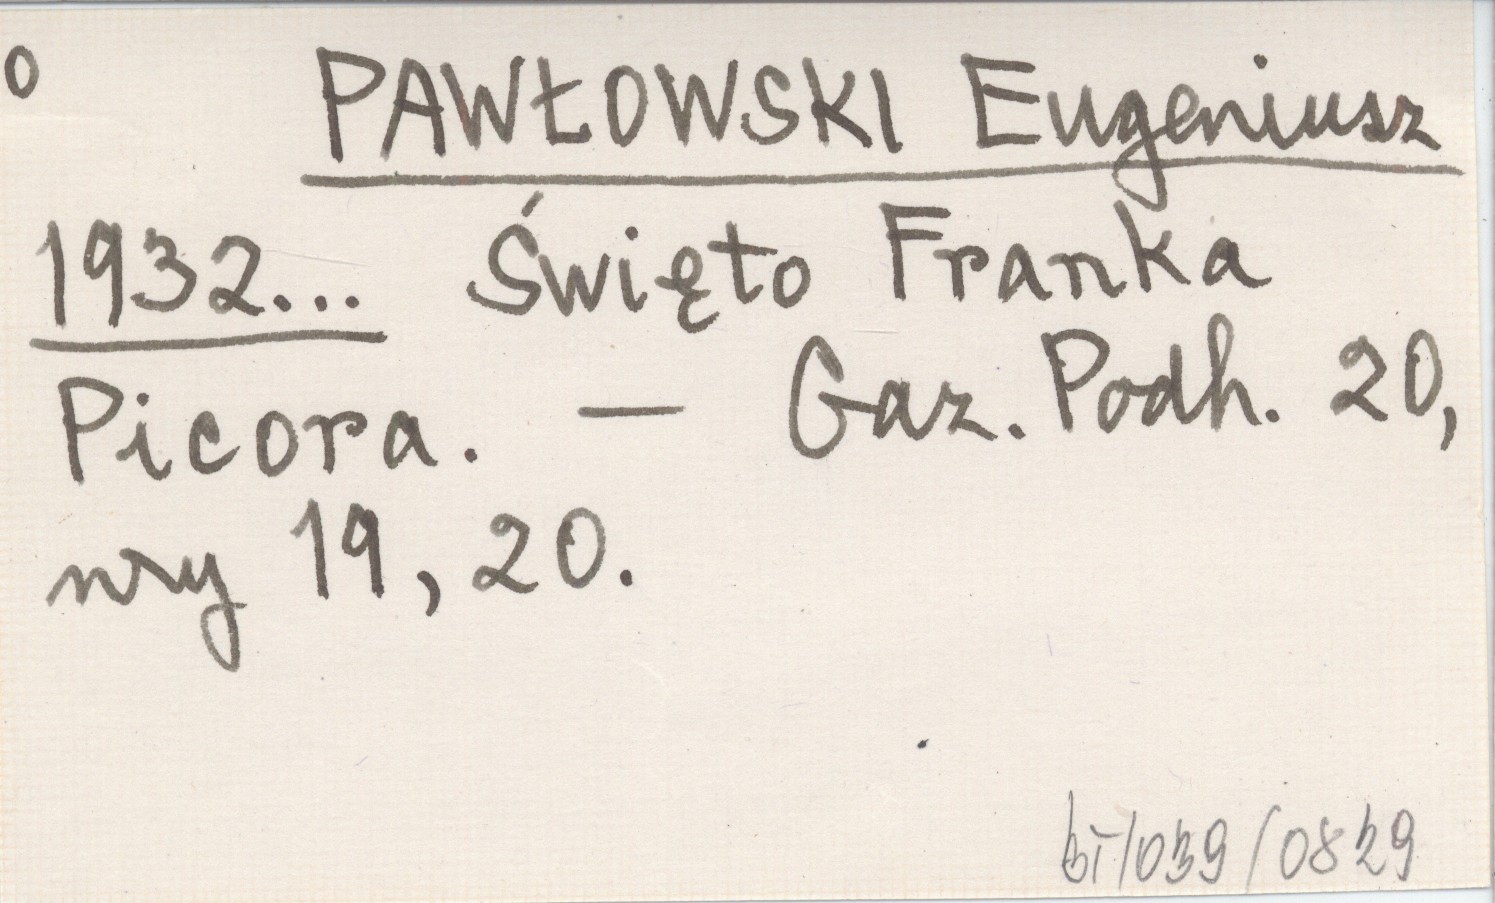 0
PAWŁOWSKI Eugeniusz
1932... Święto Franka
Picora. — Gaz. Podh. 20,
nry 19, 20.
bī/039/0829